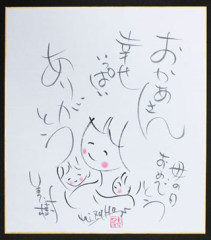 おかあさん
幸せ
いっぱい
ありがとう
母の日
おめでとう